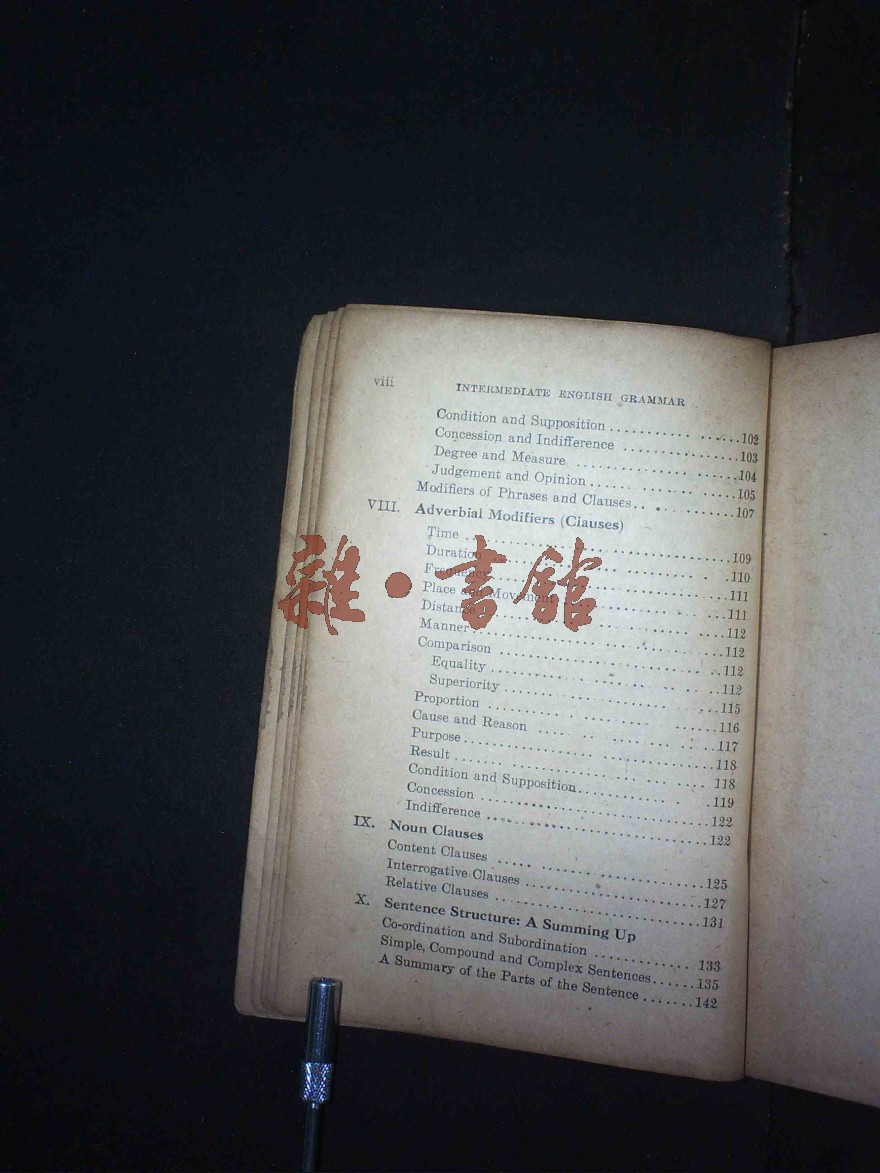 viii INTERMEDIATE ENGLISH GRAMMAR
Condition and Supposition ..............102
Concession and Indifference ..............103
Degree and Measure ....................104
Judgement and Opinion..................105
Modifiers of Phrases and Clauses..............107
VIII. Adverbial Modifiers (Clauses)
Time ..............................109
Duration ..............................110
Frequency..............................111
Place and Movement ....................111
Distance..............................112
Manner..............................112
Comparison ..............................112
Equality ..............................112
Superiority ..............................115
Proportion ..............................116
Cause and Reason ....................117
Purpose..............................118
Result..............................118
Condition and Supposition..............119
Concession ..............................122
Indifference ..............................122
IX. Noun Clauses
Content Clauses ....................125
Interrogative Clauses ....................127
Relative Clauses ....................131
X. Sentence Structure: A Summing Up
Co-ordination and Subordination ..............133
Simple, Compound and Complex Sentences......135
A Summary of the Parts of the Sentence .......142
雜·書館